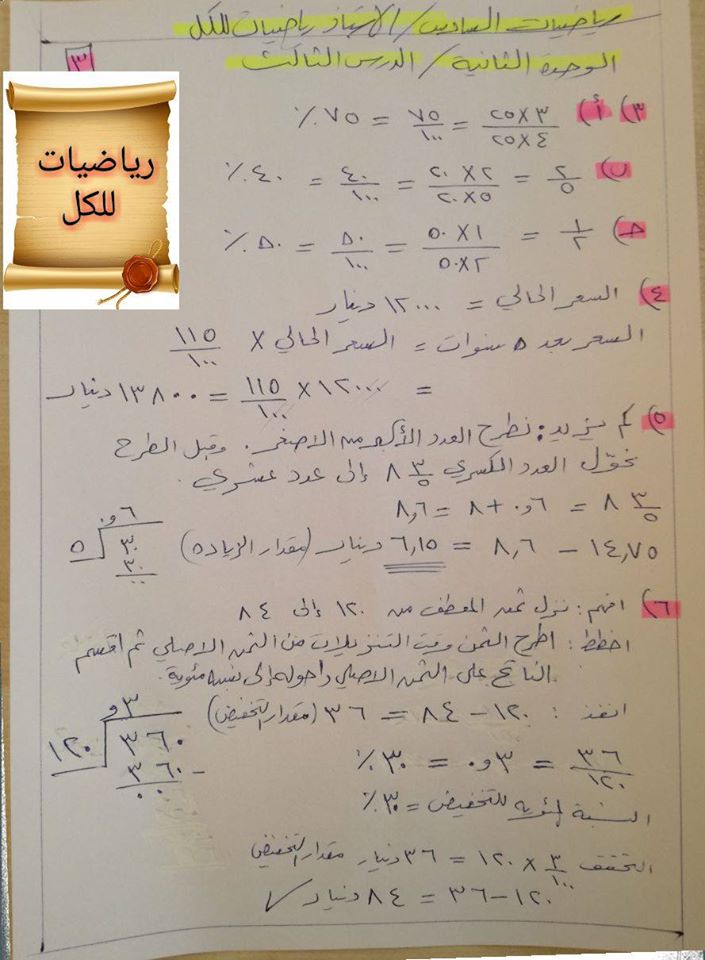 رياضيات السادس / الاستاذ رياضيات للكل
الوحدة الثانية / الدرس الثالث
٣
رياضيات
للكل
٣) أ) ٣×٢٥ / ٤×٢٥ = ٧٥/١٠٠ = ٧٥٪
ب) ٢/٥ = ٢×٢٠ / ٥×٢٠ = ٤٠/١٠٠ = ٤٠٪
جـ) ١/٢ = ١×٥٠ / ٢×٥٠ = ٥٠/١٠٠ = ٥٠٪
٤) السعر الحالي = ١٢٠٠٠ دينار
السعر بعد ٥ سنوات = السعر الحالي × ١١٥/١٠٠
= ١٢٠٠٠ × ١١٥/١٠٠ = ١٣٨٠٠ دينار
٥) كم يزيد: نطرح العدد الأكبر من الاصغر. وقبل الطرح
نحوّل العدد الكسري ٨ ٣/٥ إلى عدد عشري.
٨ ٣/٥ = ٠,٦ + ٨ = ٨,٦
١٤,٧٥ - ٨,٦ = ٦,١٥ دينار (مقدار الزيادة)
٠,٦
٥ ٣٠
٣٠
٠٠
٦) افهم: نزل ثمن المعطف من ١٢٠ إلى ٨٤
اخطط: اطرح الثمن وقت التنزيلات من الثمن الاصلي ثم اقسم
الناتج على الثمن الاصلي واحوله إلى نسبة مئوية.
انفذ: ١٢٠ - ٨٤ = ٣٦ (مقدار التخفيض)
٣٦/١٢٠ = ٠,٣ = ٣٠٪
,٣
١٢٠ ٣٦٠
٣٦٠ -
٠٠٠
النسبة المئوية للتخفيض = ٣٠٪
التحقق ٣٠/١٠٠ × ١٢٠ = ٣٦ دينار مقدار التخفيض
١٢٠ - ٣٦ = ٨٤ دينار ✓